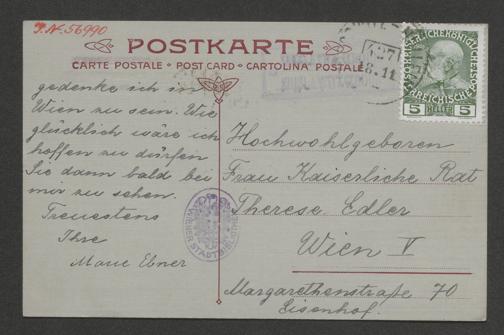 P.N. 56990
POSTKARTE
CARTE POSTALE • POST CARD • CARTOLINA POSTALE
5 HELLER 5
gedenke ich in
Wien zu sein. Wie
glücklich wäre ich
hoffen zu dürfen
Sie dann bald bei
mir zu sehen.
Treuestens
Ihre
Marie Ebner
WIENER STADTBIBLIOTHEK
Hochwohlgeboren
Frau Kaiserliche Rat
Therese Edler
Wien V
Margarethenstraße 70
Eisenhof.